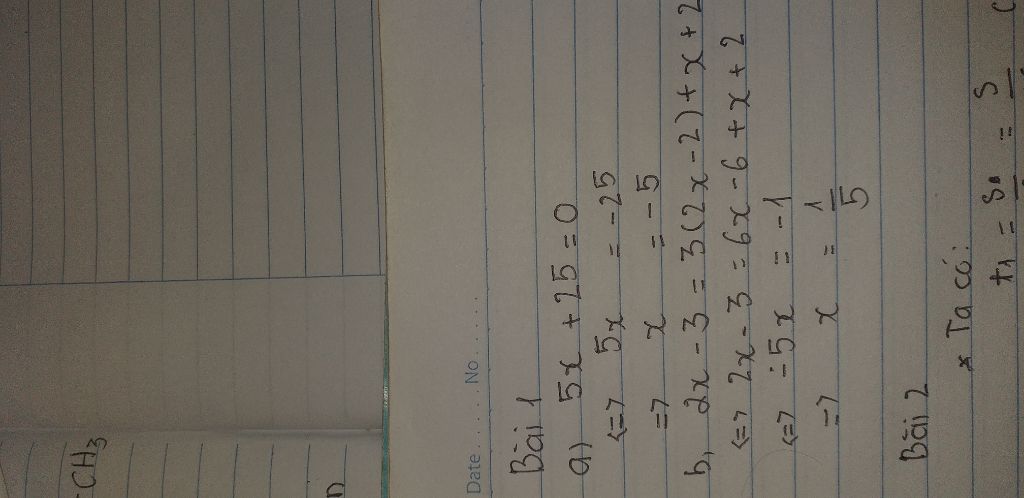 -CH3
n
Date ....... No .......
Bài 1
a) 5x + 25 = 0
<=> 5x = -25
=> x = -5
b, 2x - 3 = 3(2x - 2) + x + 2
<=> 2x - 3 = 6x - 6 + x + 2
<=> -5x = -1
=> x = 1/5
Bài 2
* Ta có:
t1 = = S